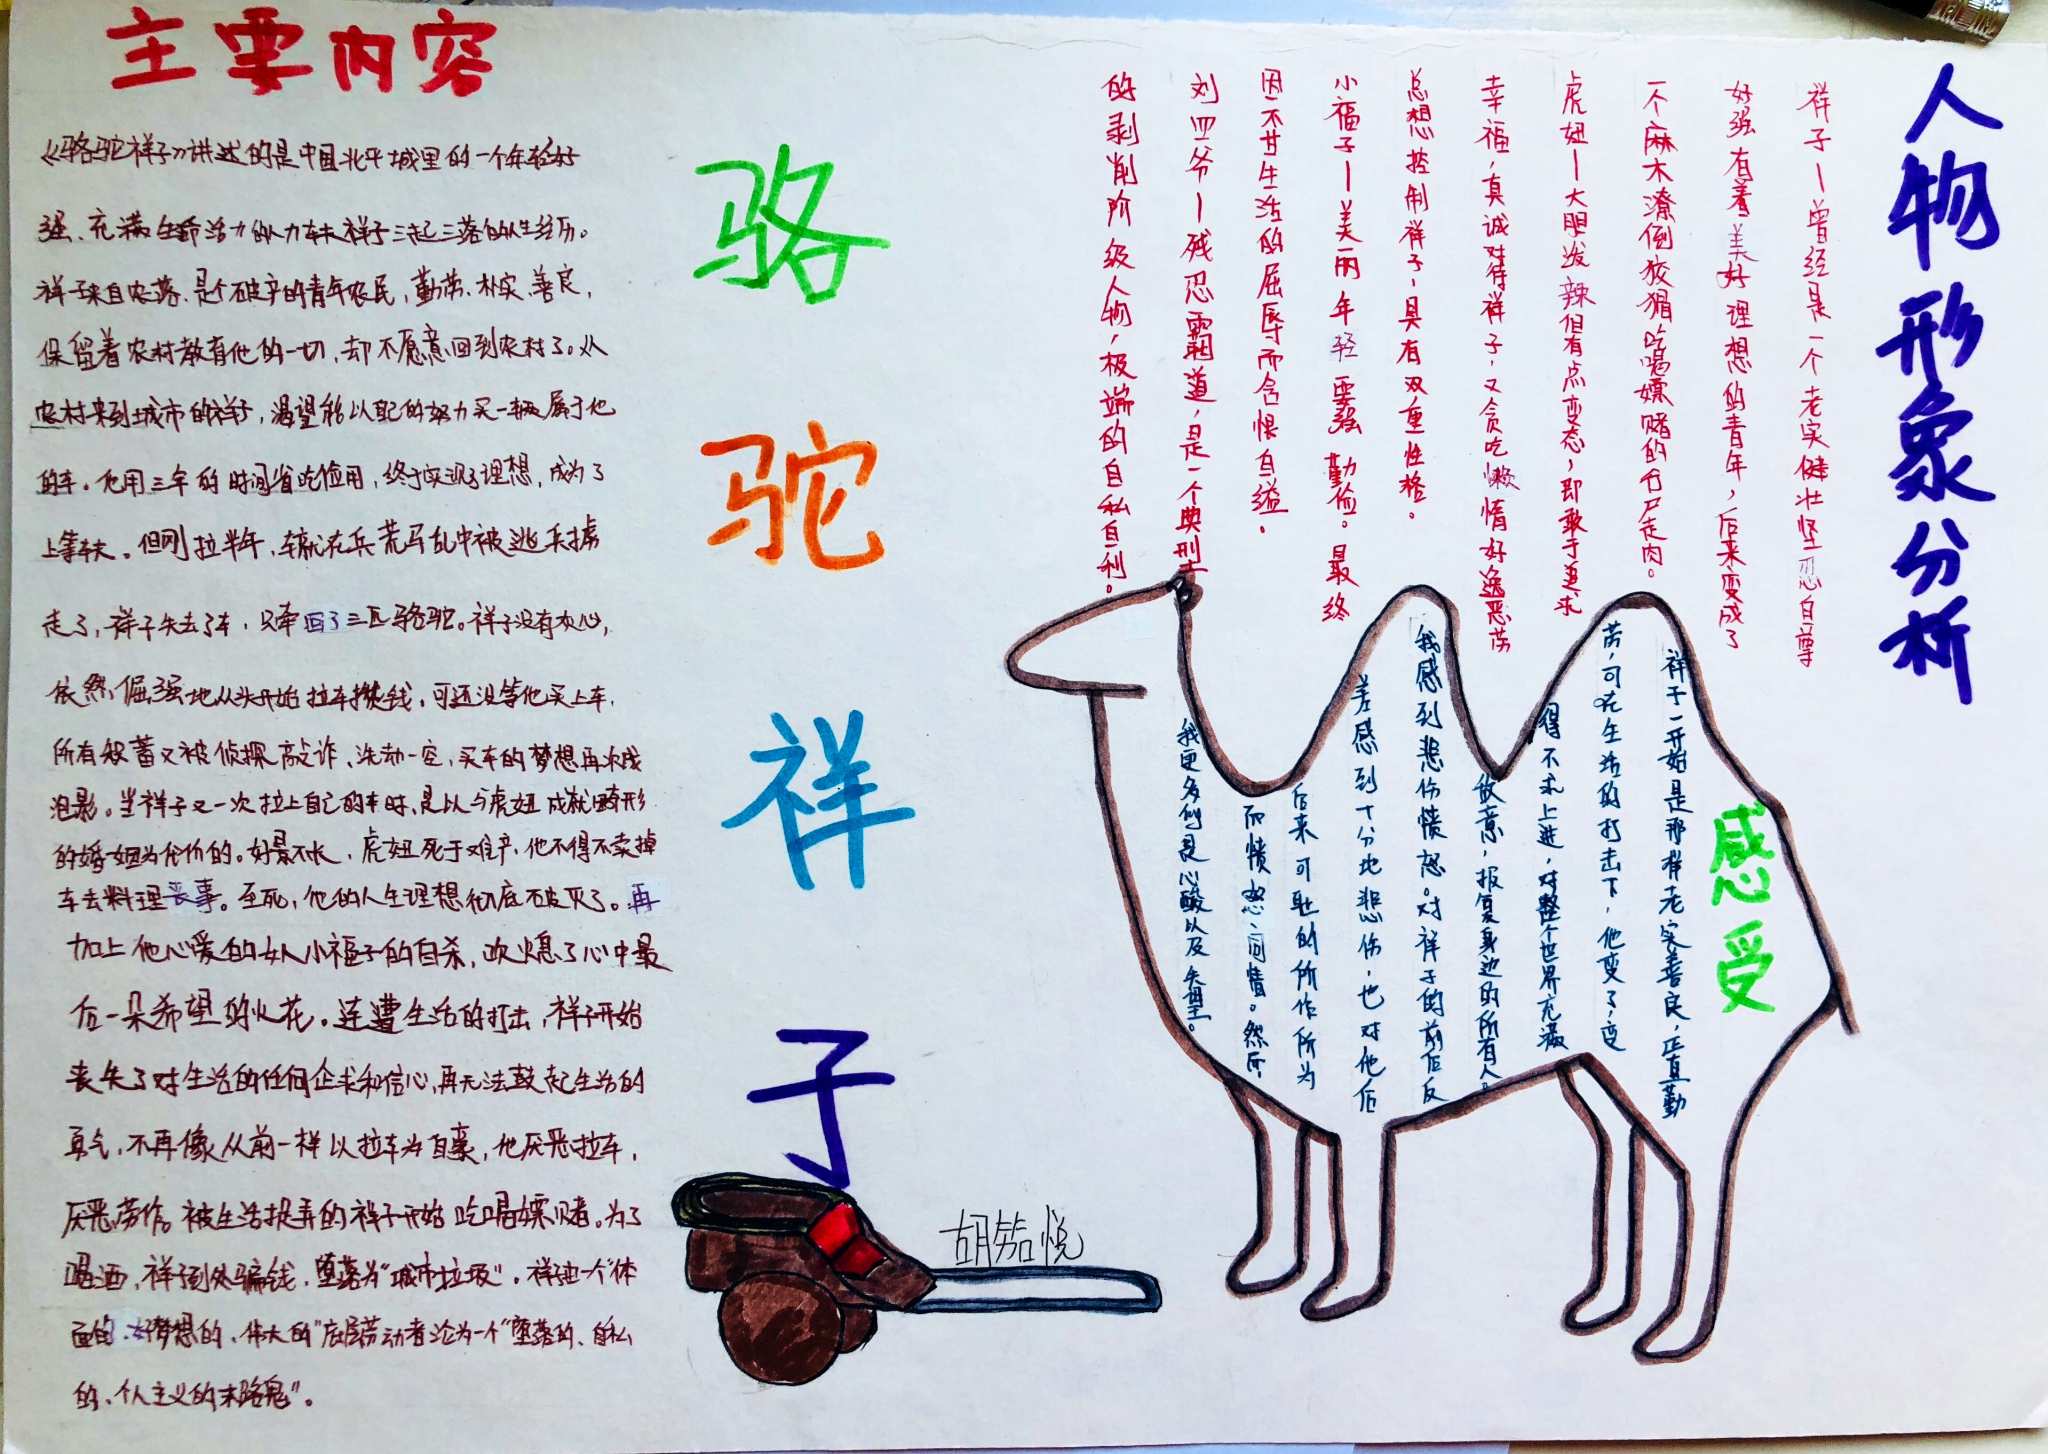 主要内容
《骆驼祥子》讲述的是中国北平城里的一个年轻好
强、充满生命活力的人力车夫祥子三起三落的人生经历。
祥子来自农落、是个破产的青年农民，勤劳、朴实、善良，
保留着农村教育他的一切，却不愿意回到农村了。从
农村来到城市的祥子，渴望能以自己的努力买一辆属于他
的车。他用三年的时间省吃俭用，终于实现了理想，成为了
上等车夫。但刚拉半年，车就在兵荒马乱中被逃兵掳
走了，祥子失去了车，只牵回了三匹骆驼。祥子没有灰心，
依然倔强地从头开始拉车攒钱。可还没等他买上车，
所有积蓄又被侦探敲诈、洗劫一空，买车的梦想再次成
泡影。当祥子又一次拉上自己的车时，是以与虎妞成就畸形
的婚姻为代价的。好景不长，虎妞死于难产，他不得不卖掉
车去料理丧事。至死，他的人生理想彻底破灭了。再
加上他心爱的女人小福子的自杀，吹熄了心中最
后一朵希望的火花。连遭生活的打击，祥子开始
丧失了对生活的任何企求和信心，再无法鼓起生活的
勇气，不再像从前一样以拉车为自豪，他厌恶拉车，
厌恶劳作。被生活捉弄的祥子开始吃喝嫖赌。为了
喝酒，祥子到处骗钱，堕落为“城市垃圾”。祥子由一个“体
面的、好梦想的、伟大的”底层劳动者沦为一个“堕落的、自私
的、个人主义的末路鬼”。
骆驼祥子
胡筠悦
人物形象分析
祥子—曾经是一个老实健壮坚忍自尊
好强有着美好理想的青年，后来变成了
一个麻木潦倒狡猾吃喝嫖赌的行尸走肉。
虎妞—大胆泼辣但有点变态，即敢于追求
幸福，真诚对待祥子，又贪吃懒惰好逸恶劳
总想控制祥子，具有双重性格。
小福子—美丽年轻要强勤俭。最终
因不甘生活的屈辱而含恨自缢。
刘四爷—残忍霸道，是一个典型
的剥削阶级人物，极端的自私自利。
感受
祥子一开始是那样老实善良，正直勤
劳，可在生活的打击下，他变了，变
得不求上进，对整个世界充满
敌意，报复身边的所有人。
我感到悲伤愤怒。对祥子的前后反
差感到十分地悲伤，也对他后
后来可耻的所作所为
而愤怒、同情。然后，
我更多的是心酸以及失望。